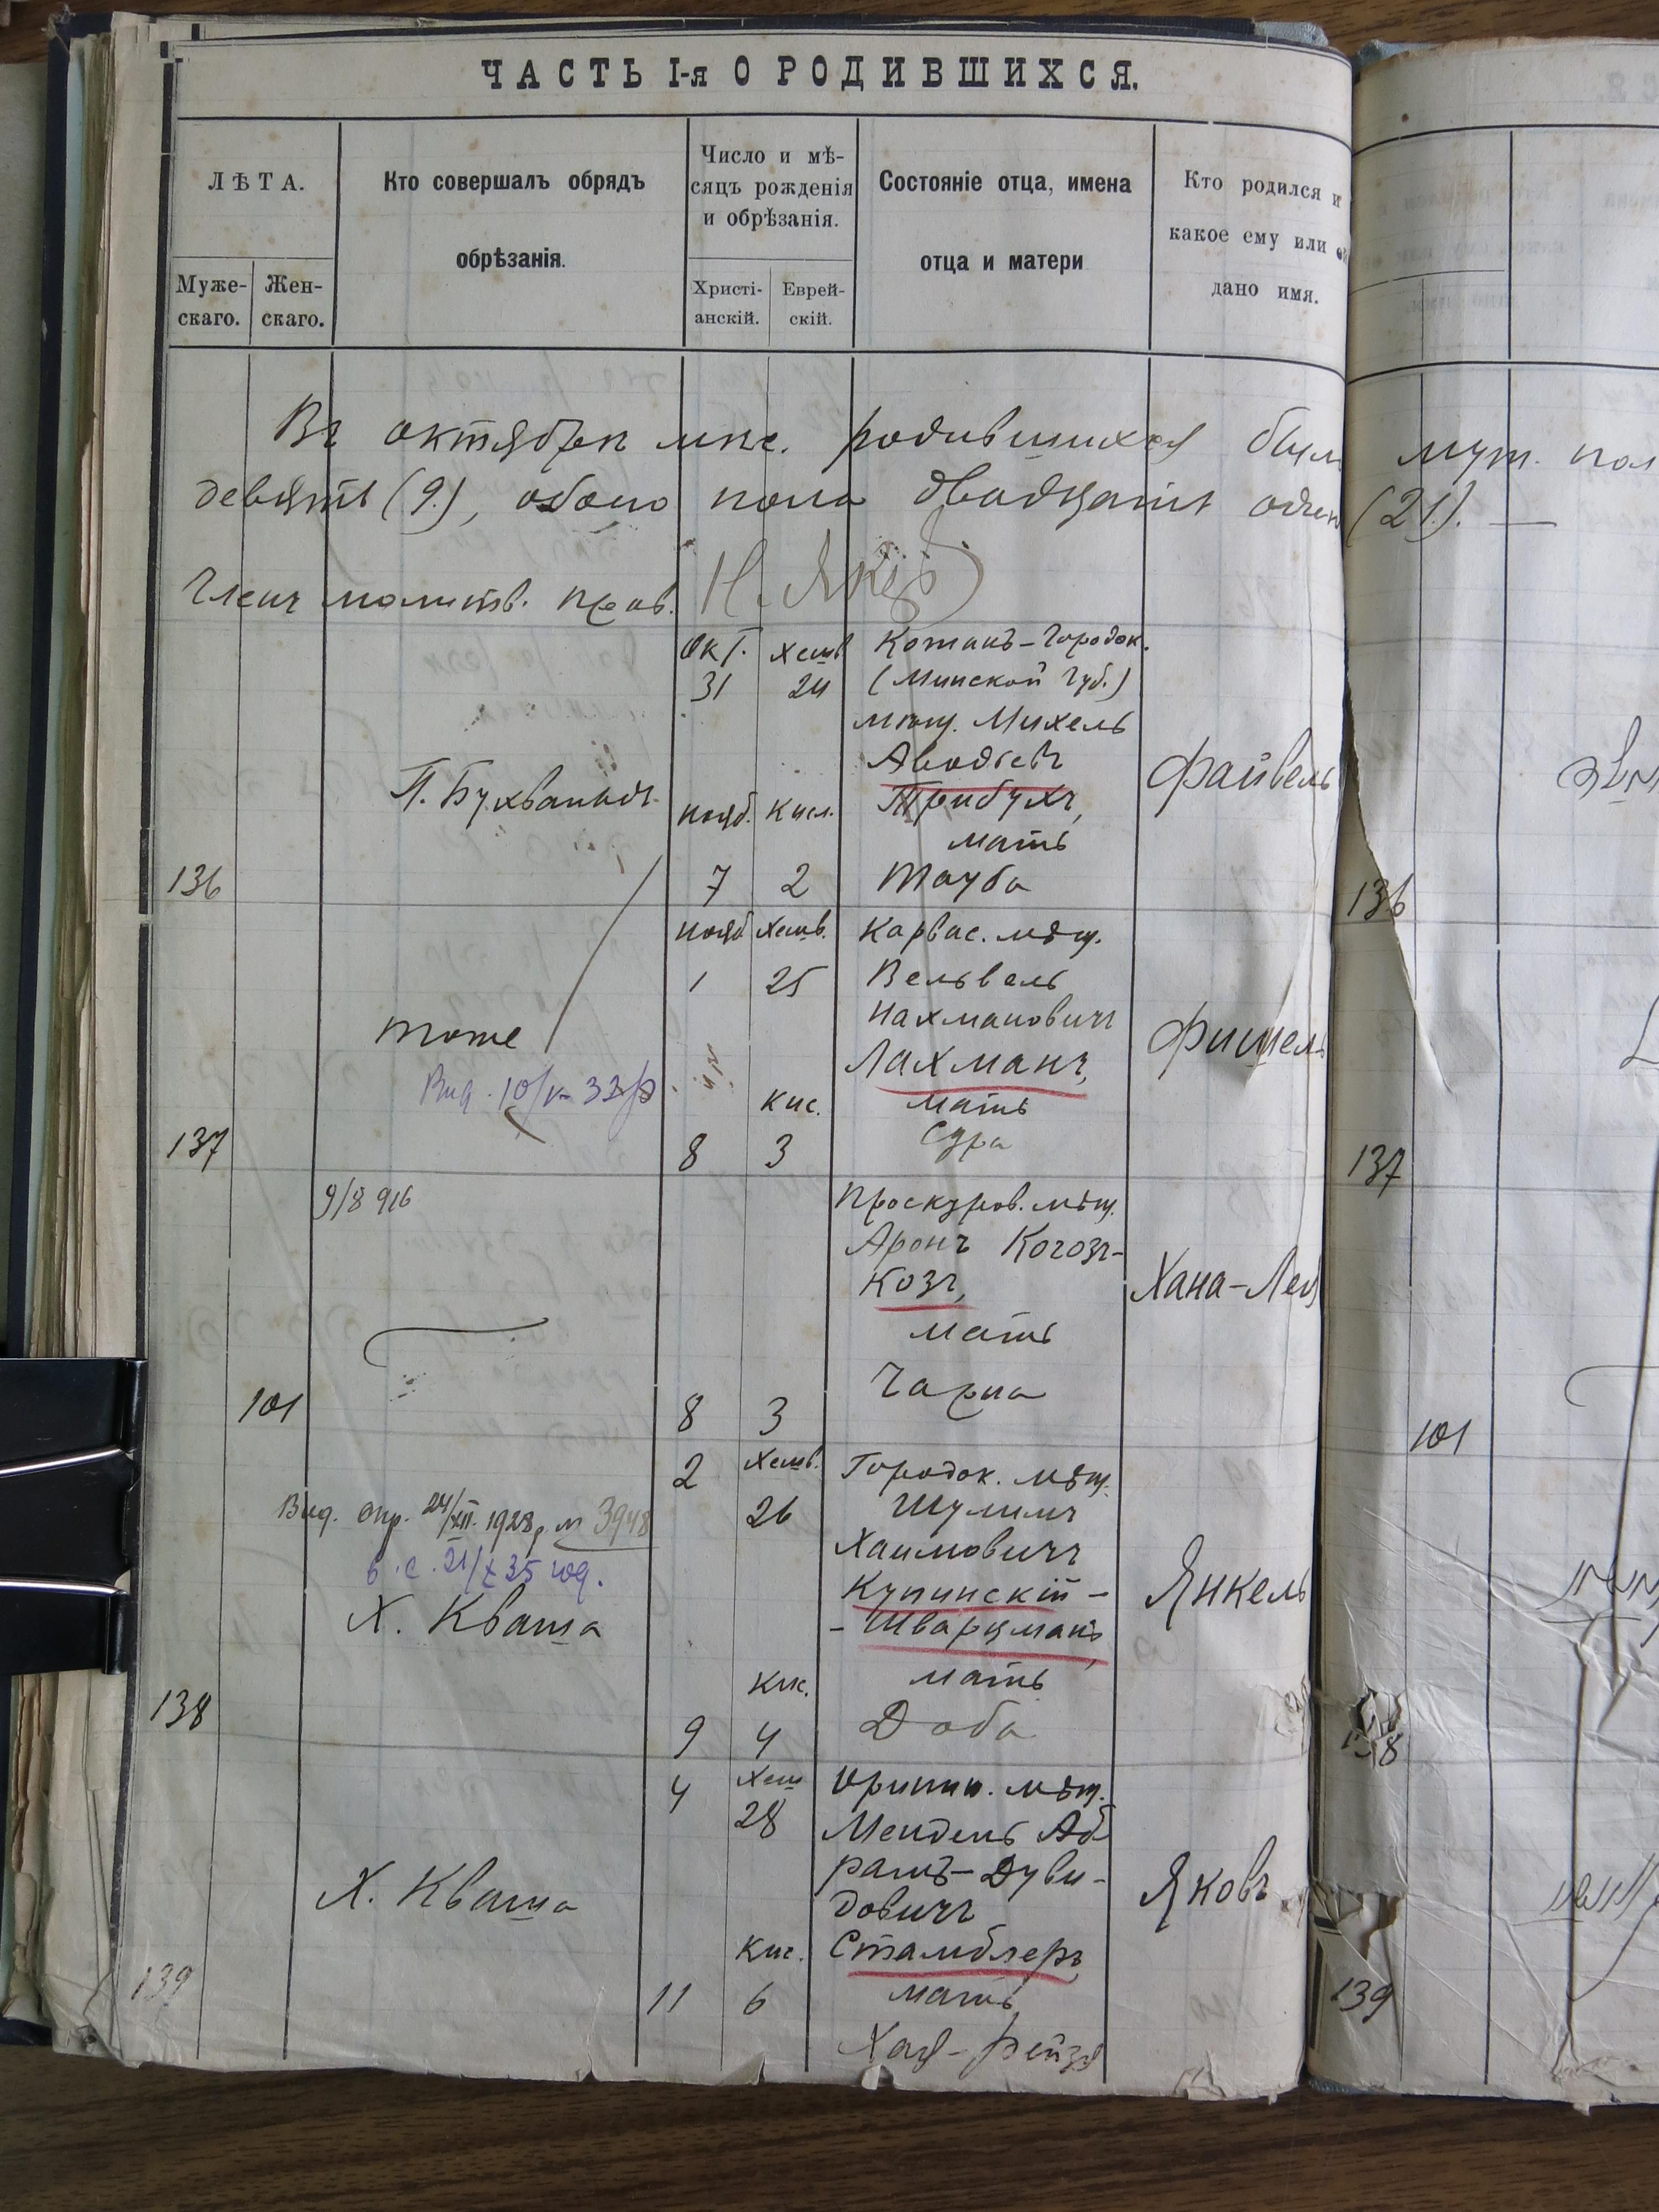 ЧАСТЬ I-я О РОДИВШИХСЯ.
ЛѢТА.
Муже-
скаго.
Жен-
скаго.
Кто совершалъ обрядъ
обрѣзанія.
Число и мѣ-
сяцъ рожденія
и обрѣзанія.
Христі-
анскій.
Еврей-
скій.
Состояніе отца, имена
отца и матери
Кто родился и
какое ему или
дано имя.
Въ октябрѣ мѣс. родившихся был муж. пол
девять (9.), обоего пола двадцать один (21). —
Членъ молитв. прав.
Окт. Хешв Котанъ-Городок.
31 24 (Минской Губ.)
мѣщ. Михель
П. Бухванидъ Файвель
нояб. Кисл. Трибухъ,
мать
136 7 2 Тауба 136
нояб Хешв. Карвас. мѣщ.
1 25 Вельвель
Нахмановичъ
тоже Лахманъ, Фишель
Вид. 10/V 33 р.
кис. мать
Сура
137 8 3 137
9/8 916 Проскуров. мѣщ.
Аронъ Когозъ-
Козъ, Хана-Лея
мать
Чарна
101 8 3 101
2 Хешв. Городок. мѣщ.
Вид. спр. 24/XII. 1928 р. № 3948 26 Шулимъ
в. с. 21/X 35 год. Хаимовичъ
Х. Кваша Купинскій-
-Шварцманъ, Янкель
кис. мать
138 9 4 Доба 138
4 Хеш Оринин. мѣщ.
28 Мендель Аб
рамъ-Дуви-
Х. Кваша довичъ Яковъ
кис. Стамблеръ,
139 11 6 мать 139
Хая-Рейзя